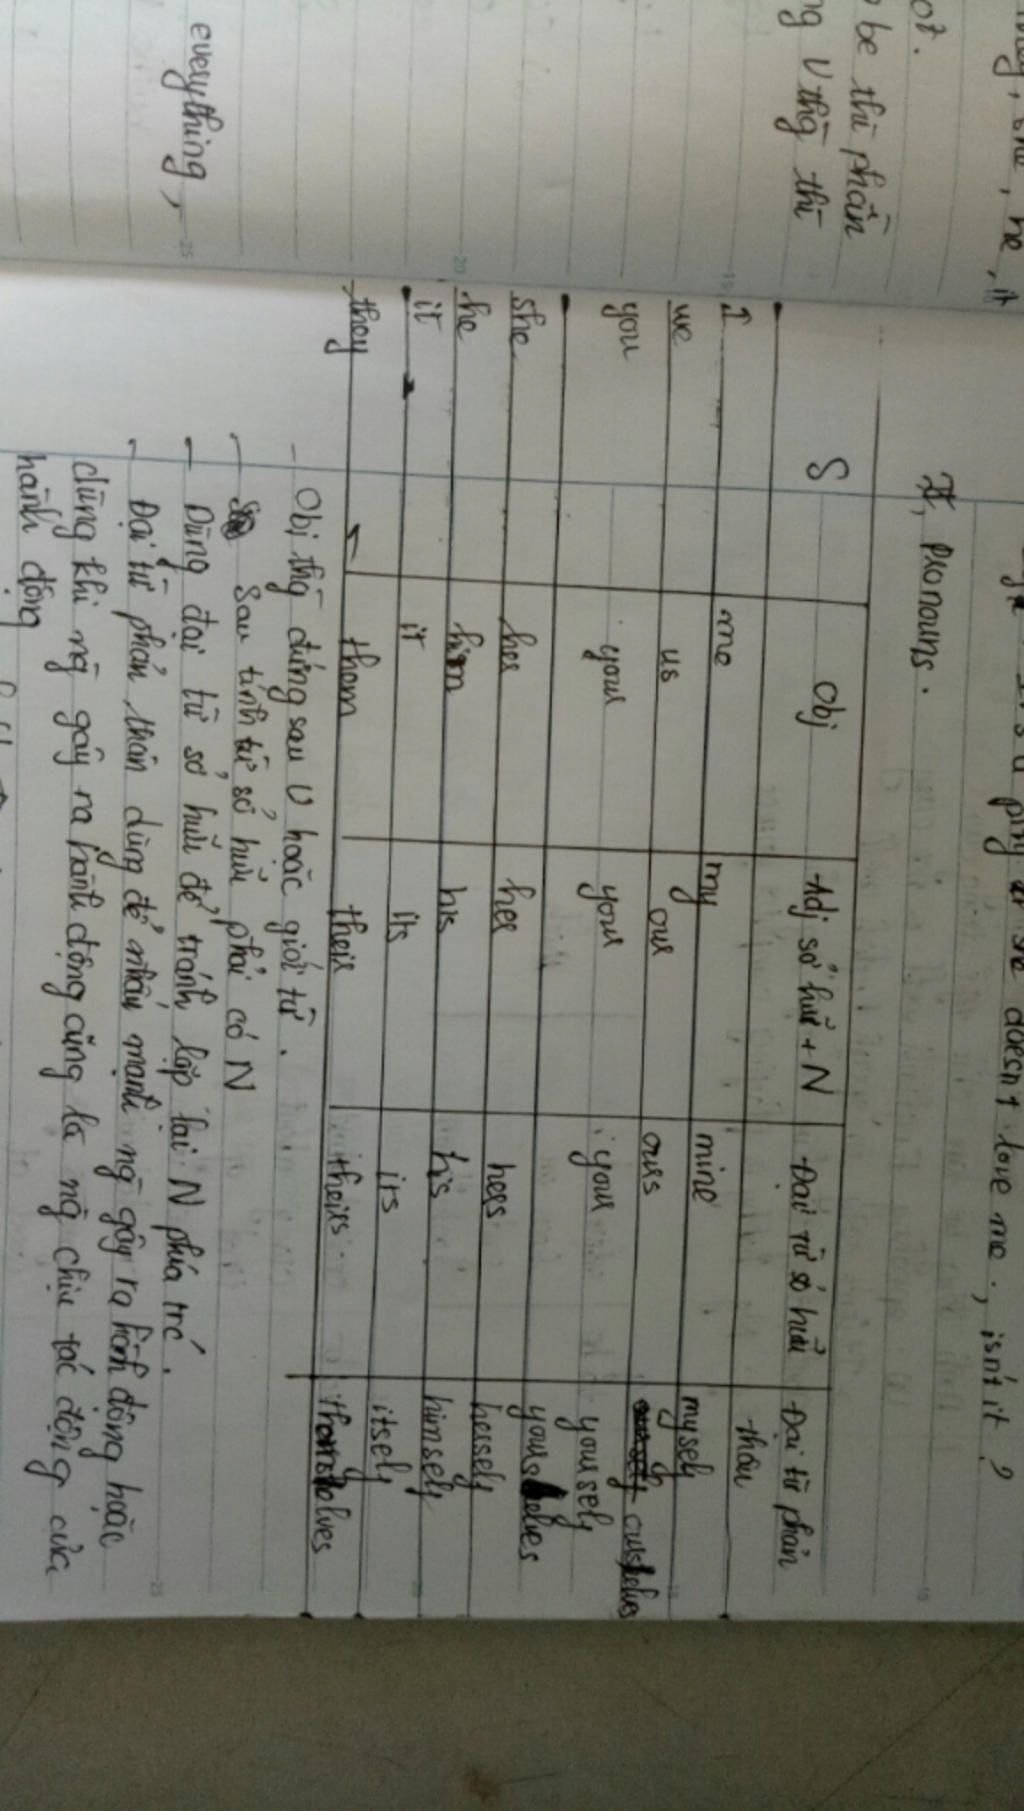 everything,
ot.
be thì phần
ng V thg thì
she, he, it
doesn't love me, isn't it?
II, Pronouns.
S Obj Adj sở hữu + N Đại từ sở hữu Đại từ phản thân
I me my mine myself
we us our ours ourselves
you your your your yourself
yourselves
she her her hers herself
he him his his himself
it it its its itself
they them their theirs themselves
- Obj thg đứng sau V hoặc giới từ.
- Sau tính từ sở hữu phải có N
- Dùng đại từ sở hữu để tránh lặp lại N phía trc.
- Đại từ phản thân dùng để nhấn mạnh ng gây ra hành động hoặc
dùng khi ng gây ra hành động cũng là ng chịu tác động của
hành động